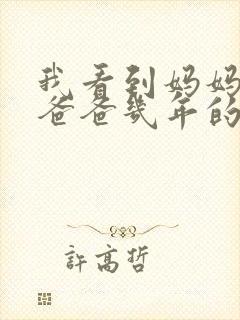 我看到妈妈
爸爸几年的
許高哲